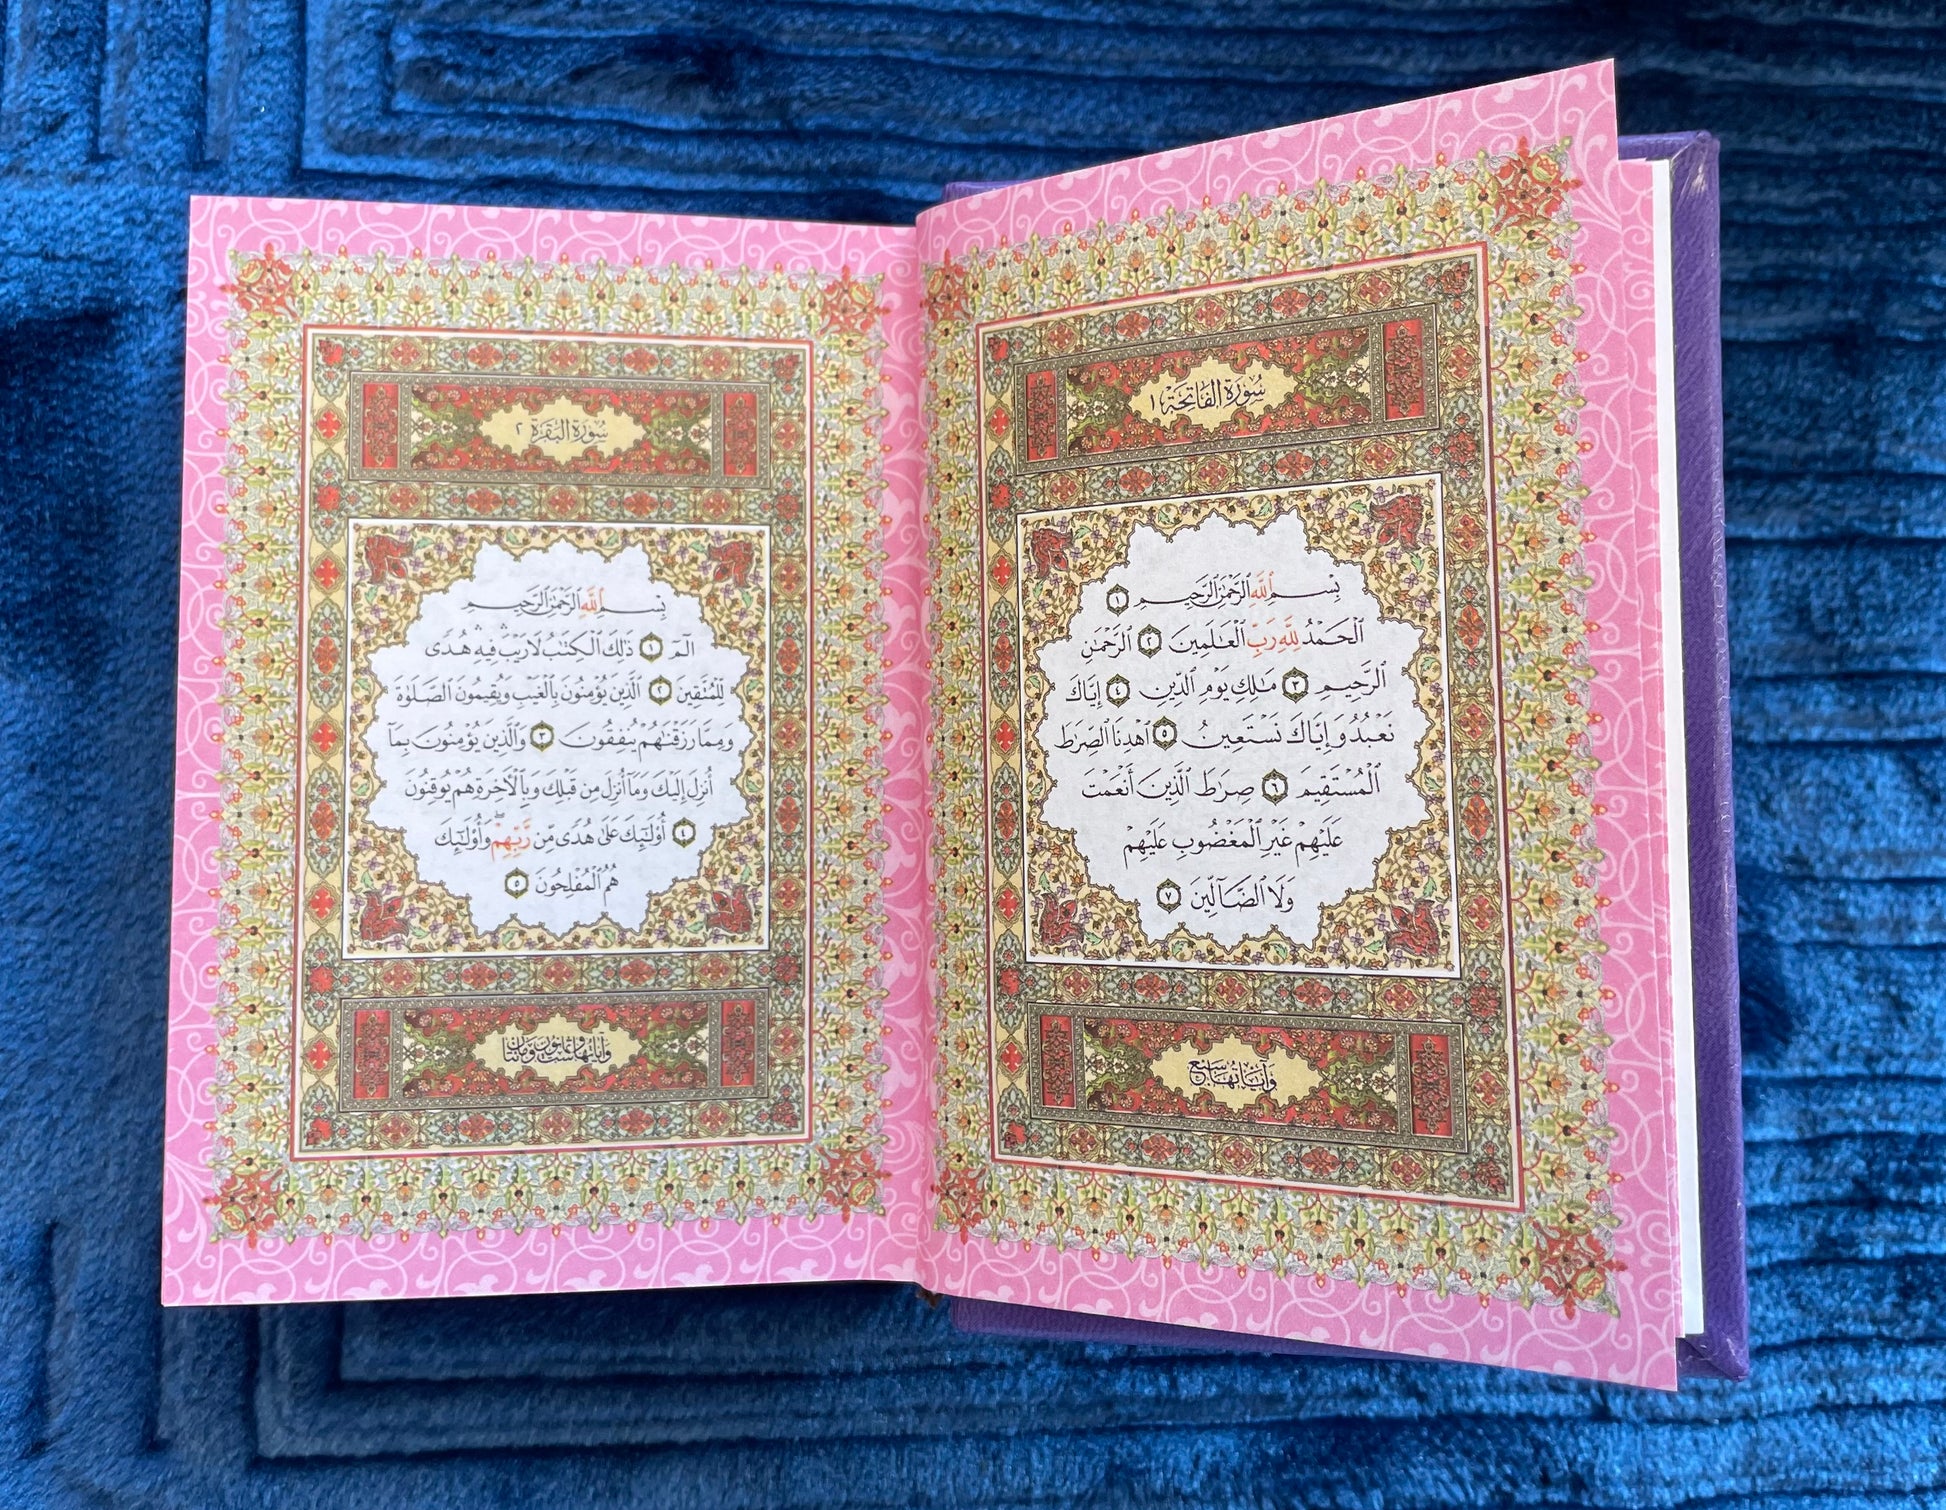 سُورَةُ الفَاتِحَةِ ١
بِسْمِ ٱللَّهِ ٱلرَّحْمَٰنِ ٱلرَّحِيمِ ١
ٱلْحَمْدُ لِلَّهِ رَبِّ ٱلْعَٰلَمِينَ ٢ ٱلرَّحْمَٰنِ
ٱلرَّحِيمِ ٣ مَٰلِكِ يَوْمِ ٱلدِّينِ ٤ إِيَّاكَ
نَعْبُدُ وَإِيَّاكَ نَسْتَعِينُ ٥ ٱهْدِنَا ٱلصِّرَٰطَ
ٱلْمُسْتَقِيمَ ٦ صِرَٰطَ ٱلَّذِينَ أَنْعَمْتَ
عَلَيْهِمْ غَيْرِ ٱلْمَغْضُوبِ عَلَيْهِمْ
وَلَا ٱلضَّآلِّينَ ٧
وَآيَاتُهَا سَبْعٌ
سُورَةُ البَقَرَةِ ٢
بِسْمِ ٱللَّهِ ٱلرَّحْمَٰنِ ٱلرَّحِيمِ
الٓمٓ ١ ذَٰلِكَ ٱلْكِتَٰبُ لَا رَيْبَ ۛ فِيهِ ۛ هُدًى
لِّلْمُتَّقِينَ ٢ ٱلَّذِينَ يُؤْمِنُونَ بِٱلْغَيْبِ وَيُقِيمُونَ ٱلصَّلَوٰةَ
وَمِمَّا رَزَقْنَٰهُمْ يُنفِقُونَ ٣ وَٱلَّذِينَ يُؤْمِنُونَ بِمَآ
أُنزِلَ إِلَيْكَ وَمَآ أُنزِلَ مِن قَبْلِكَ وَبِٱلْأٓخِرَةِ هُمْ يُوقِنُونَ
٤ أُو۟لَٰٓئِكَ عَلَىٰ هُدًى مِّن رَّبِّهِمْ ۖ وَأُو۟لَٰٓئِكَ
هُمُ ٱلْمُفْلِحُونَ ٥
وَآيَاتُهَا سِتٌّ وَثَمَانُونَ وَمِائَتَانِ